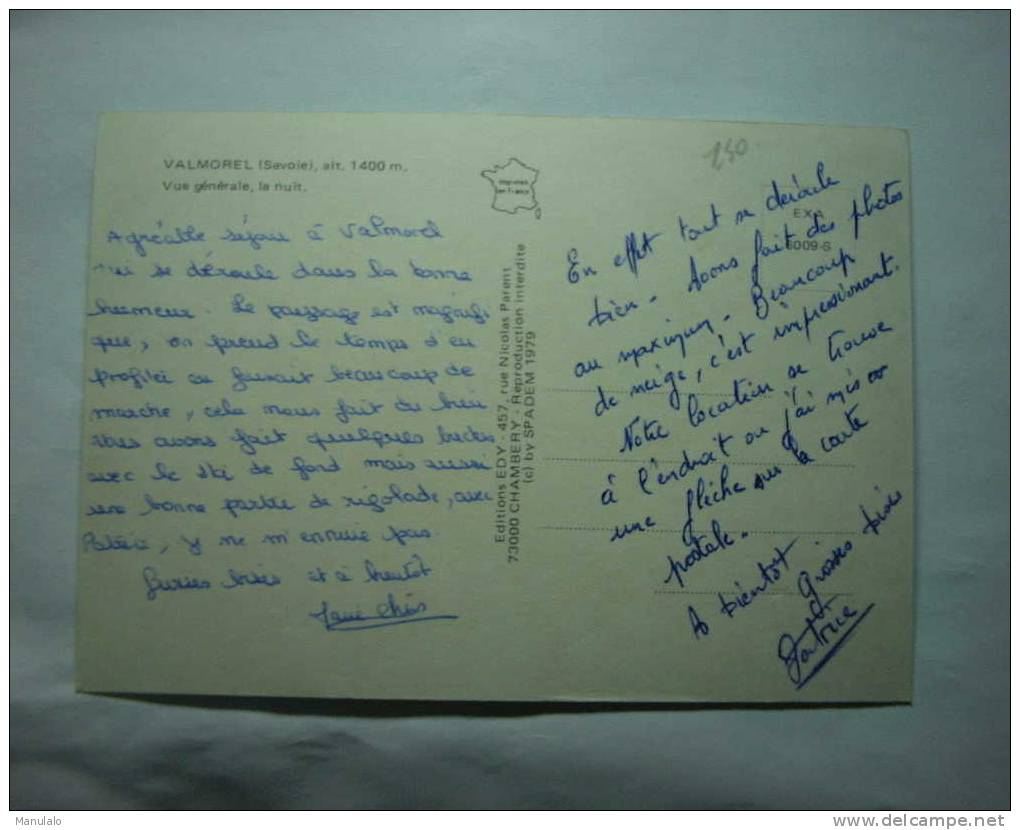 VALMOREL (Savoie), alt. 1400 m.
Vue générale, la nuit.
Agréable séjour à Valmorel
qui se déroule dans la bonne
humeur. Le paysage est magnifi
que, on prend le temps d'en
profiter en faisant beaucoup de
marche, cela nous fait du bien
Nous avons fait quelques
avec le ski de fond mais aussi
une bonne partie de rigolade, avec
y ne m'ennuie pas.
bises et à bientôt
Imprimé
en France
Editions EDY - 457, rue Nicolas Parent
73000 CHAMBERY - Reproduction interdite
(c) by SPADEM 1979
EX.
6009-S
En effet tout se déroule
bien - Avons fait des photos
au maximum - Beaucoup
de neige, c'est impressionant.
Notre location se trouve
à l'endroit ou j'ai mis
une flèche sur la carte
postale -
A bientôt
Grosses bises
Patrice
Manulalo
www.delcampe.net